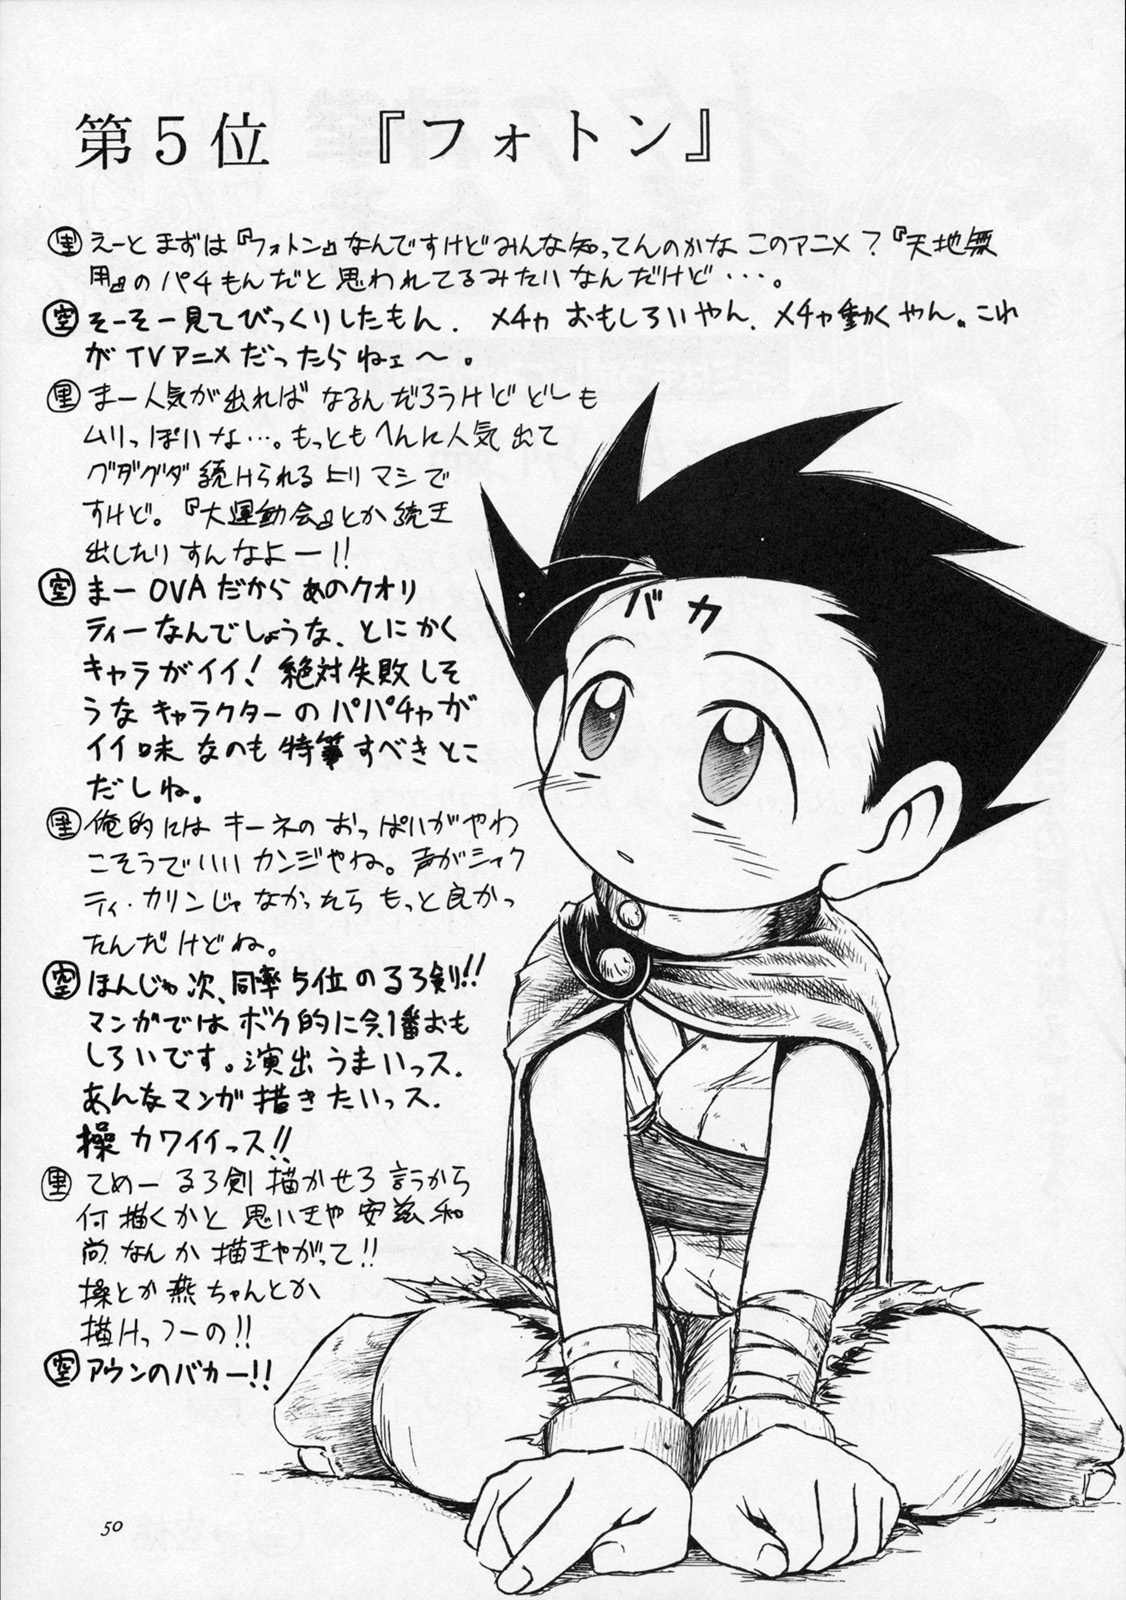 第5位　『フォトン』
里 えーとまずは『フォトン』なんですけどみんな知ってんのかな このアニメ?『天地無
用』のパチもんだと思われてるみたいなんだけど・・・。
空 そーそー見てびっくりしたもん. メチャおもしろいやん. メチャ動くやん。これ
がTVアニメだったらねェ〜。
里 まー人気が出ればなるんだろうけどどーも
ムリっぽいな・・・。もっともへんに人気出て
グダグダ続けられるよりマシで
すけど。『大運動会』とか続王
出したりすんなよー!!
空 まーOVAだからあのクオリ
ティーなんでしょうな、とにかく
キャラがイイ! 絶対失敗しそ
うなキャラクターのパパチャが
イイ味なのも特筆すべきとこ
だしね。
里 俺的にはキーネのおっぱいがやわ
こそうでいいカンジやね。声がシャク
ティ・カリンじゃなかったらもっと良かっ
たんだけどね。
空 ほんじゃ次、同率5位のるろ剣!!
マンガではボク的に今、1番おも
しろいです。演出うまいっス.
あんなマンガ描きたいっス.
操カワイイっス!!
里 てめーるろ剣描かせろ言うから
何描くかと思いきや安慈和
尚なんか描きやがって!!
操とか燕ちゃんとか
描けっつーの!!
空 アウンのバカー!!
バカ
50